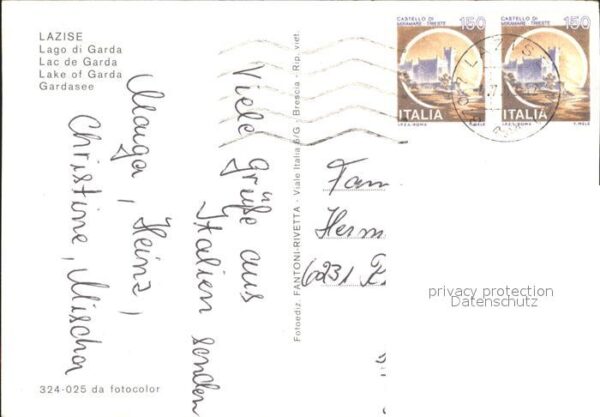 LAZISE
Lago di Garda
Lac de Garda
Lake of Garda
Gardasee
Viele Grüße aus
Italien senden
Heinz,
Christine, Mischa
324-025 da fotocolor
Fotoediz. FANTONI-RIVETTA - Viale Italia 5/G - Brescia - Rip. viet.
CASTELLO DI
MIRAMARE · TRIESTE
150
ITALIA
I.P.Z.S. ROMA
T. MELE
CASTELLO DI
MIRAMARE · TRIESTE
150
ITALIA
I.P.Z.S. ROMA
T. MELE
LAZIS
Fam
Herm
6231
privacy protection
Datenschutz